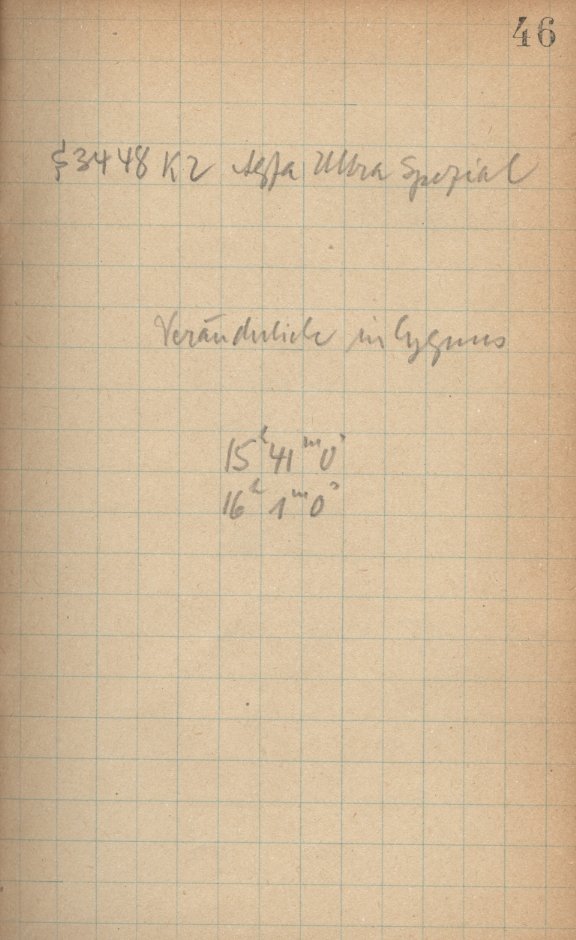 46
§3448 K2 Agfa Ultra Spezial
Veränderliche in Cygnus
15ʰ 41ᵐ 0ˢ
16ʰ 1ᵐ 0ˢ